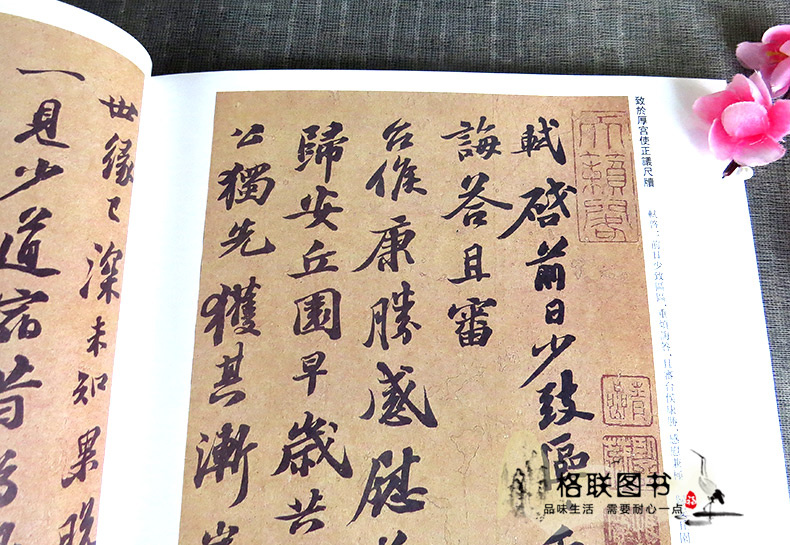 致於厚宫使正議尺牘
軾啓：前日少致區區，重煩誨答，且審台候康勝，感慰兼極。
天籟閣
軾啓前日少致區
誨答且審
台候康勝感慰
歸安丘園早歲共
公獨先獲其漸
世緣已深未知果脱
一見少道宿昔為
格联图书
品味生活 需要耐心一点